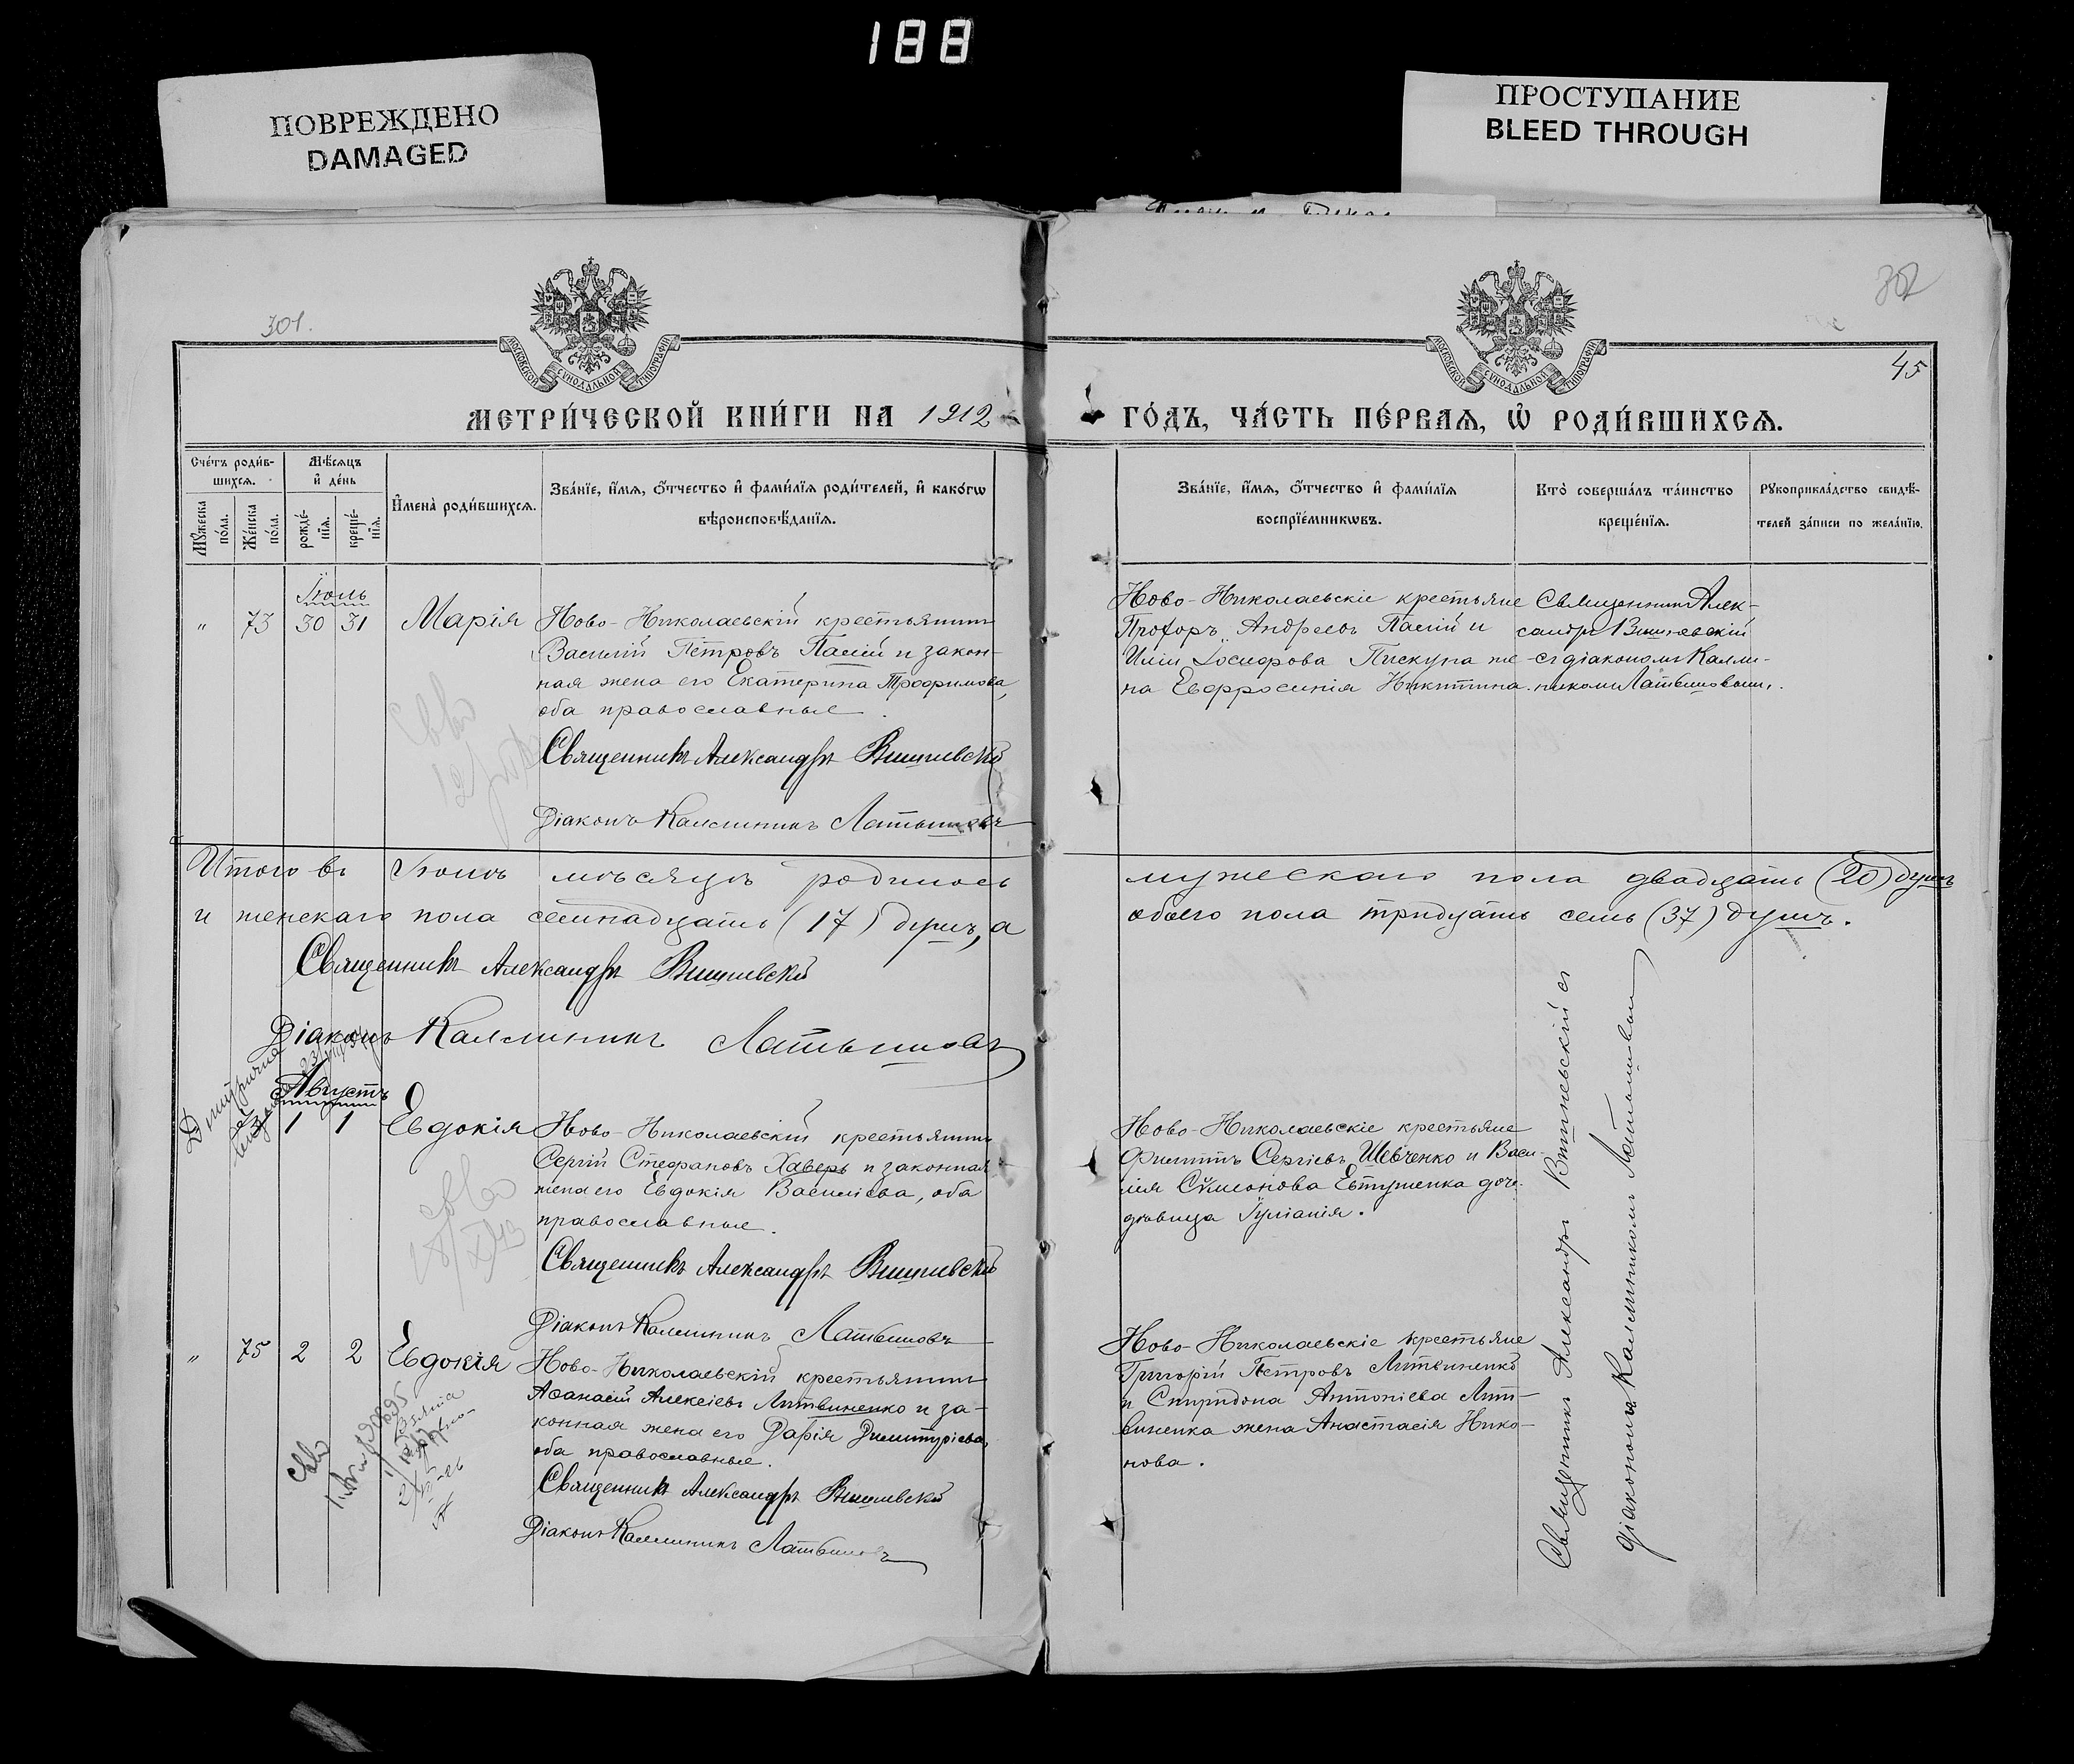 188
ПОВРЕЖДЕНО
DAMAGED
ПРОСТУПАНИЕ
BLEED THROUGH
301.
302
45
МОСКОВСКОЙ СѴНОДАЛЬНОЙ ТИПОГРАФІИ
МОСКОВСКОЙ СѴНОДАЛЬНОЙ ТИПОГРАФІИ
МЕТРИ́ЧЕСКОЙ КНИ́ГИ НА 1912
ГО́ДЪ, ЧА́СТЬ ПЕ́РВАѦ, Ѽ РОДИ́ВШИХСѦ.
Сче́тъ роди́в-
шихсѧ.
Мꙋ́жеска по́ла.
Же́нска по́ла.
Мѣ́сѧцъ
и҆ де́нь
рожде́-
нїѧ.
креще́-
нїѧ.
И҆мена̀ роди́вшихсѧ.
Зва́нїе, и҆́мѧ, ѻ҆́тчество и҆ фами́лїѧ роди́телей, и҆ како́гѡ
вѣроисповѣ́данїѧ.
Зва́нїе, и҆́мѧ, ѻ҆́тчество и҆ фами́лїѧ
воспрїе́мникѡвъ.
Кто̀ соверша́лъ та́инство
креще́нїѧ.
Рꙋкоприкла́дство свидѣ́-
телей за́писи по жела́нїю.
Іюль
" 73 30 31 Марія
Ново-Николаевскій крестьянин
Василій Петровъ Палій и закон-
ная жена его Екатерина Трофимова,
оба православные.
Священникъ Александръ Вишневскій
Діаконъ Каллиникъ Латышовъ
Ново-Николаевскіе крестьяне
Прохоръ Андреевъ Палій и
Иліи Іосифова Пискуна же-
на Евфросинія Никитина.
Священник Алек-
сандръ Вишневскій
съ діаконом Калли-
ником Латышовым.
Итого въ Іюлѣ мѣсяцѣ родилось
мужескаго пола двадцать (20) душъ
и женскаго пола семнадцать (17) душъ, а
обоего пола тридцать семь (37) душъ.
Священникъ Александръ Вишневскій
Діаконъ Каллиникъ Латышовъ
Августъ
1 1 Евдокія
Ново-Николаевскій крестьянин
Сергій Стефановъ Хаверь и законная
жена его Евдокія Василіева, оба
православные.
Священникъ Александръ Вишневскій
Діаконъ Каллиникъ Латышовъ
Ново-Николаевскіе крестьяне
Филиппъ Сергіевъ Шевченко и Васи-
лія Сѵмеонова Евтушенка дочь
дѣвица Іуліанія.
" 75 2 2 Евдокія
Ново-Николаевскій крестьянин
Аѳанасій Алексіевъ Литвиненко и за-
конная жена его Дарія Димитріева,
оба православные.
Священникъ Александръ Вишневскій
Діаконъ Каллиникъ Латышовъ
Ново-Николаевскіе крестьяне
Григорій Петровъ Литвиненко
и Спиридона Антоніева Лит-
виненка жена Анастасія Нико-
нова.
Священникъ Александръ Вишневскій съ
діакономъ Каллиникомъ Латышовым